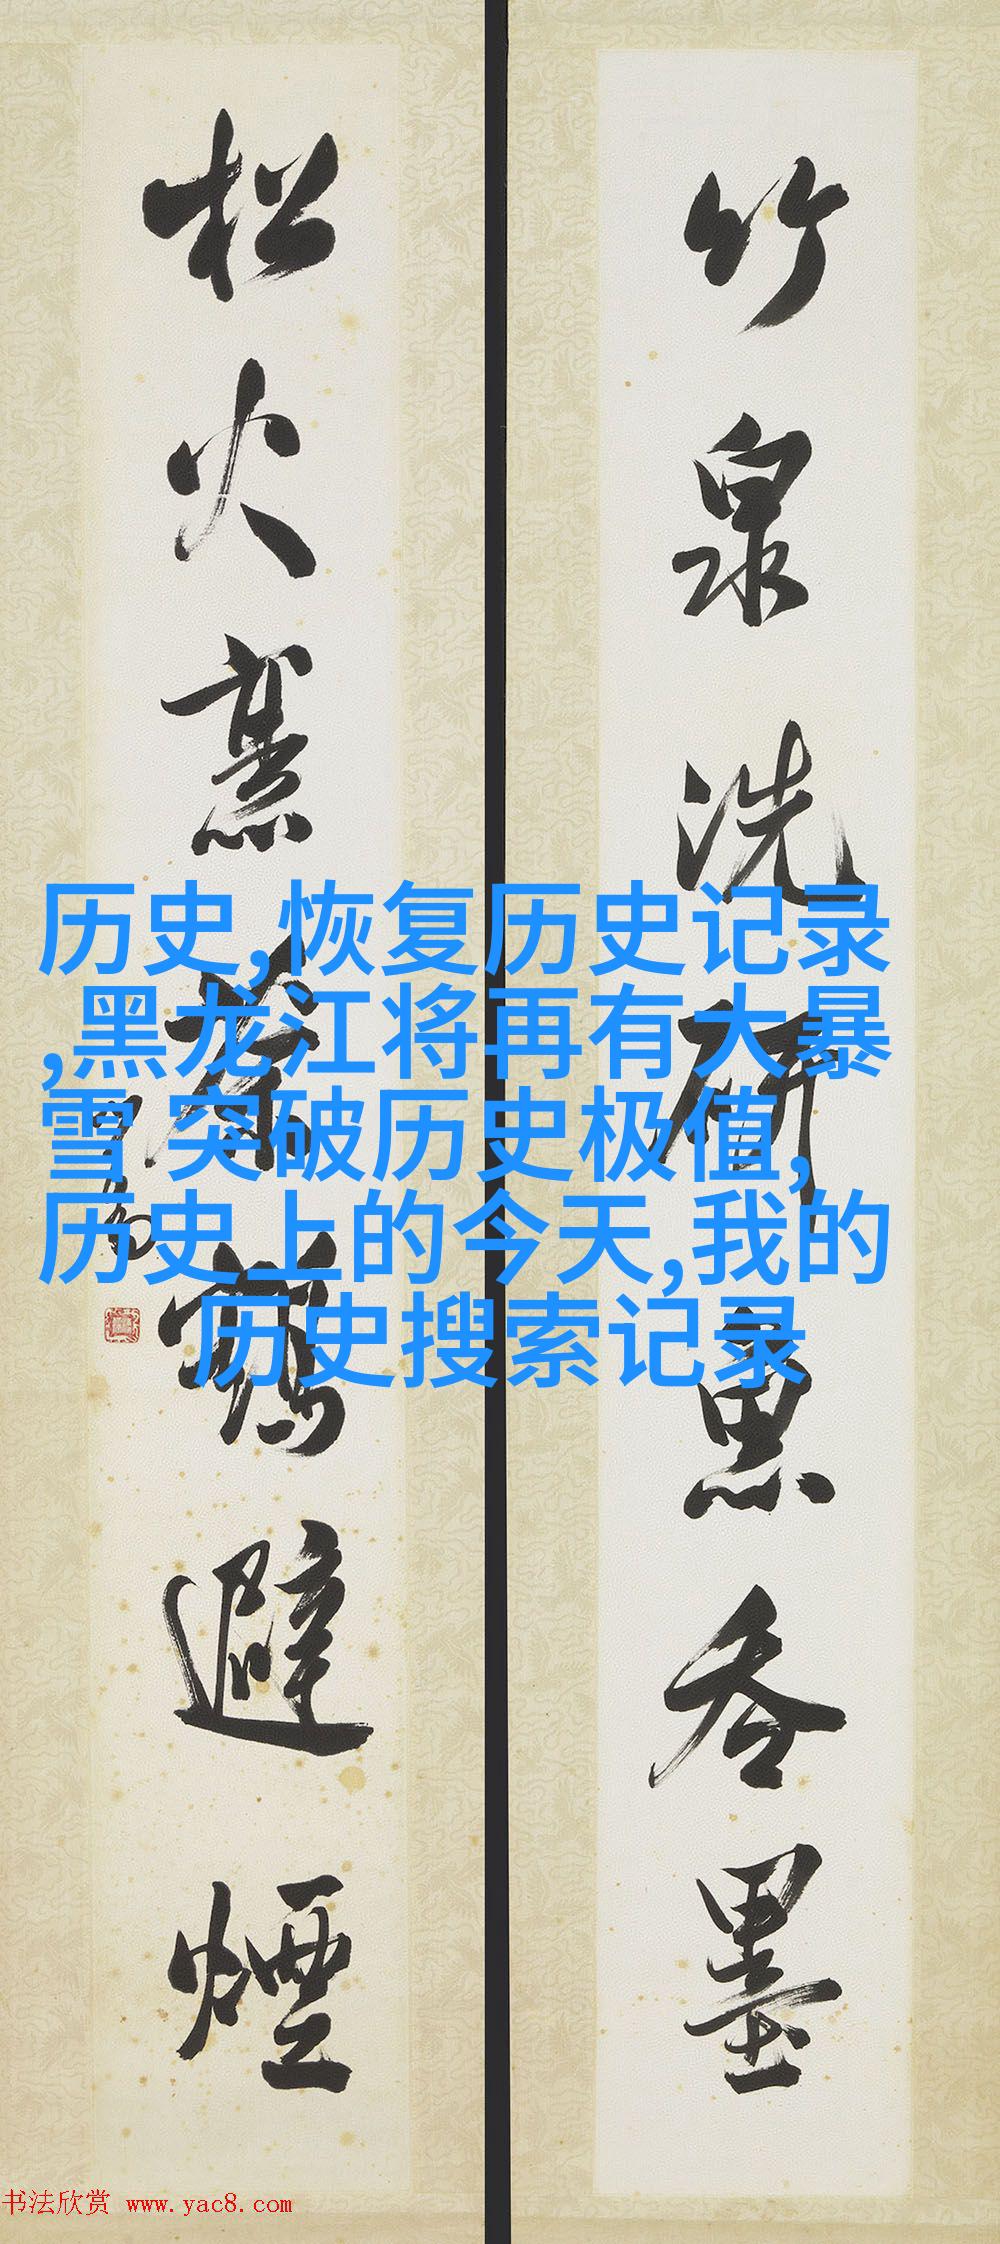 竹泉洗研魚吞墨
松火烹茶鶴避煙
历史,恢复历史记录
,黑龙江将再有大暴
雪 突破历史极值,
历史上的今天,我的
历史搜索记录
书法欣赏 www.yac8.com